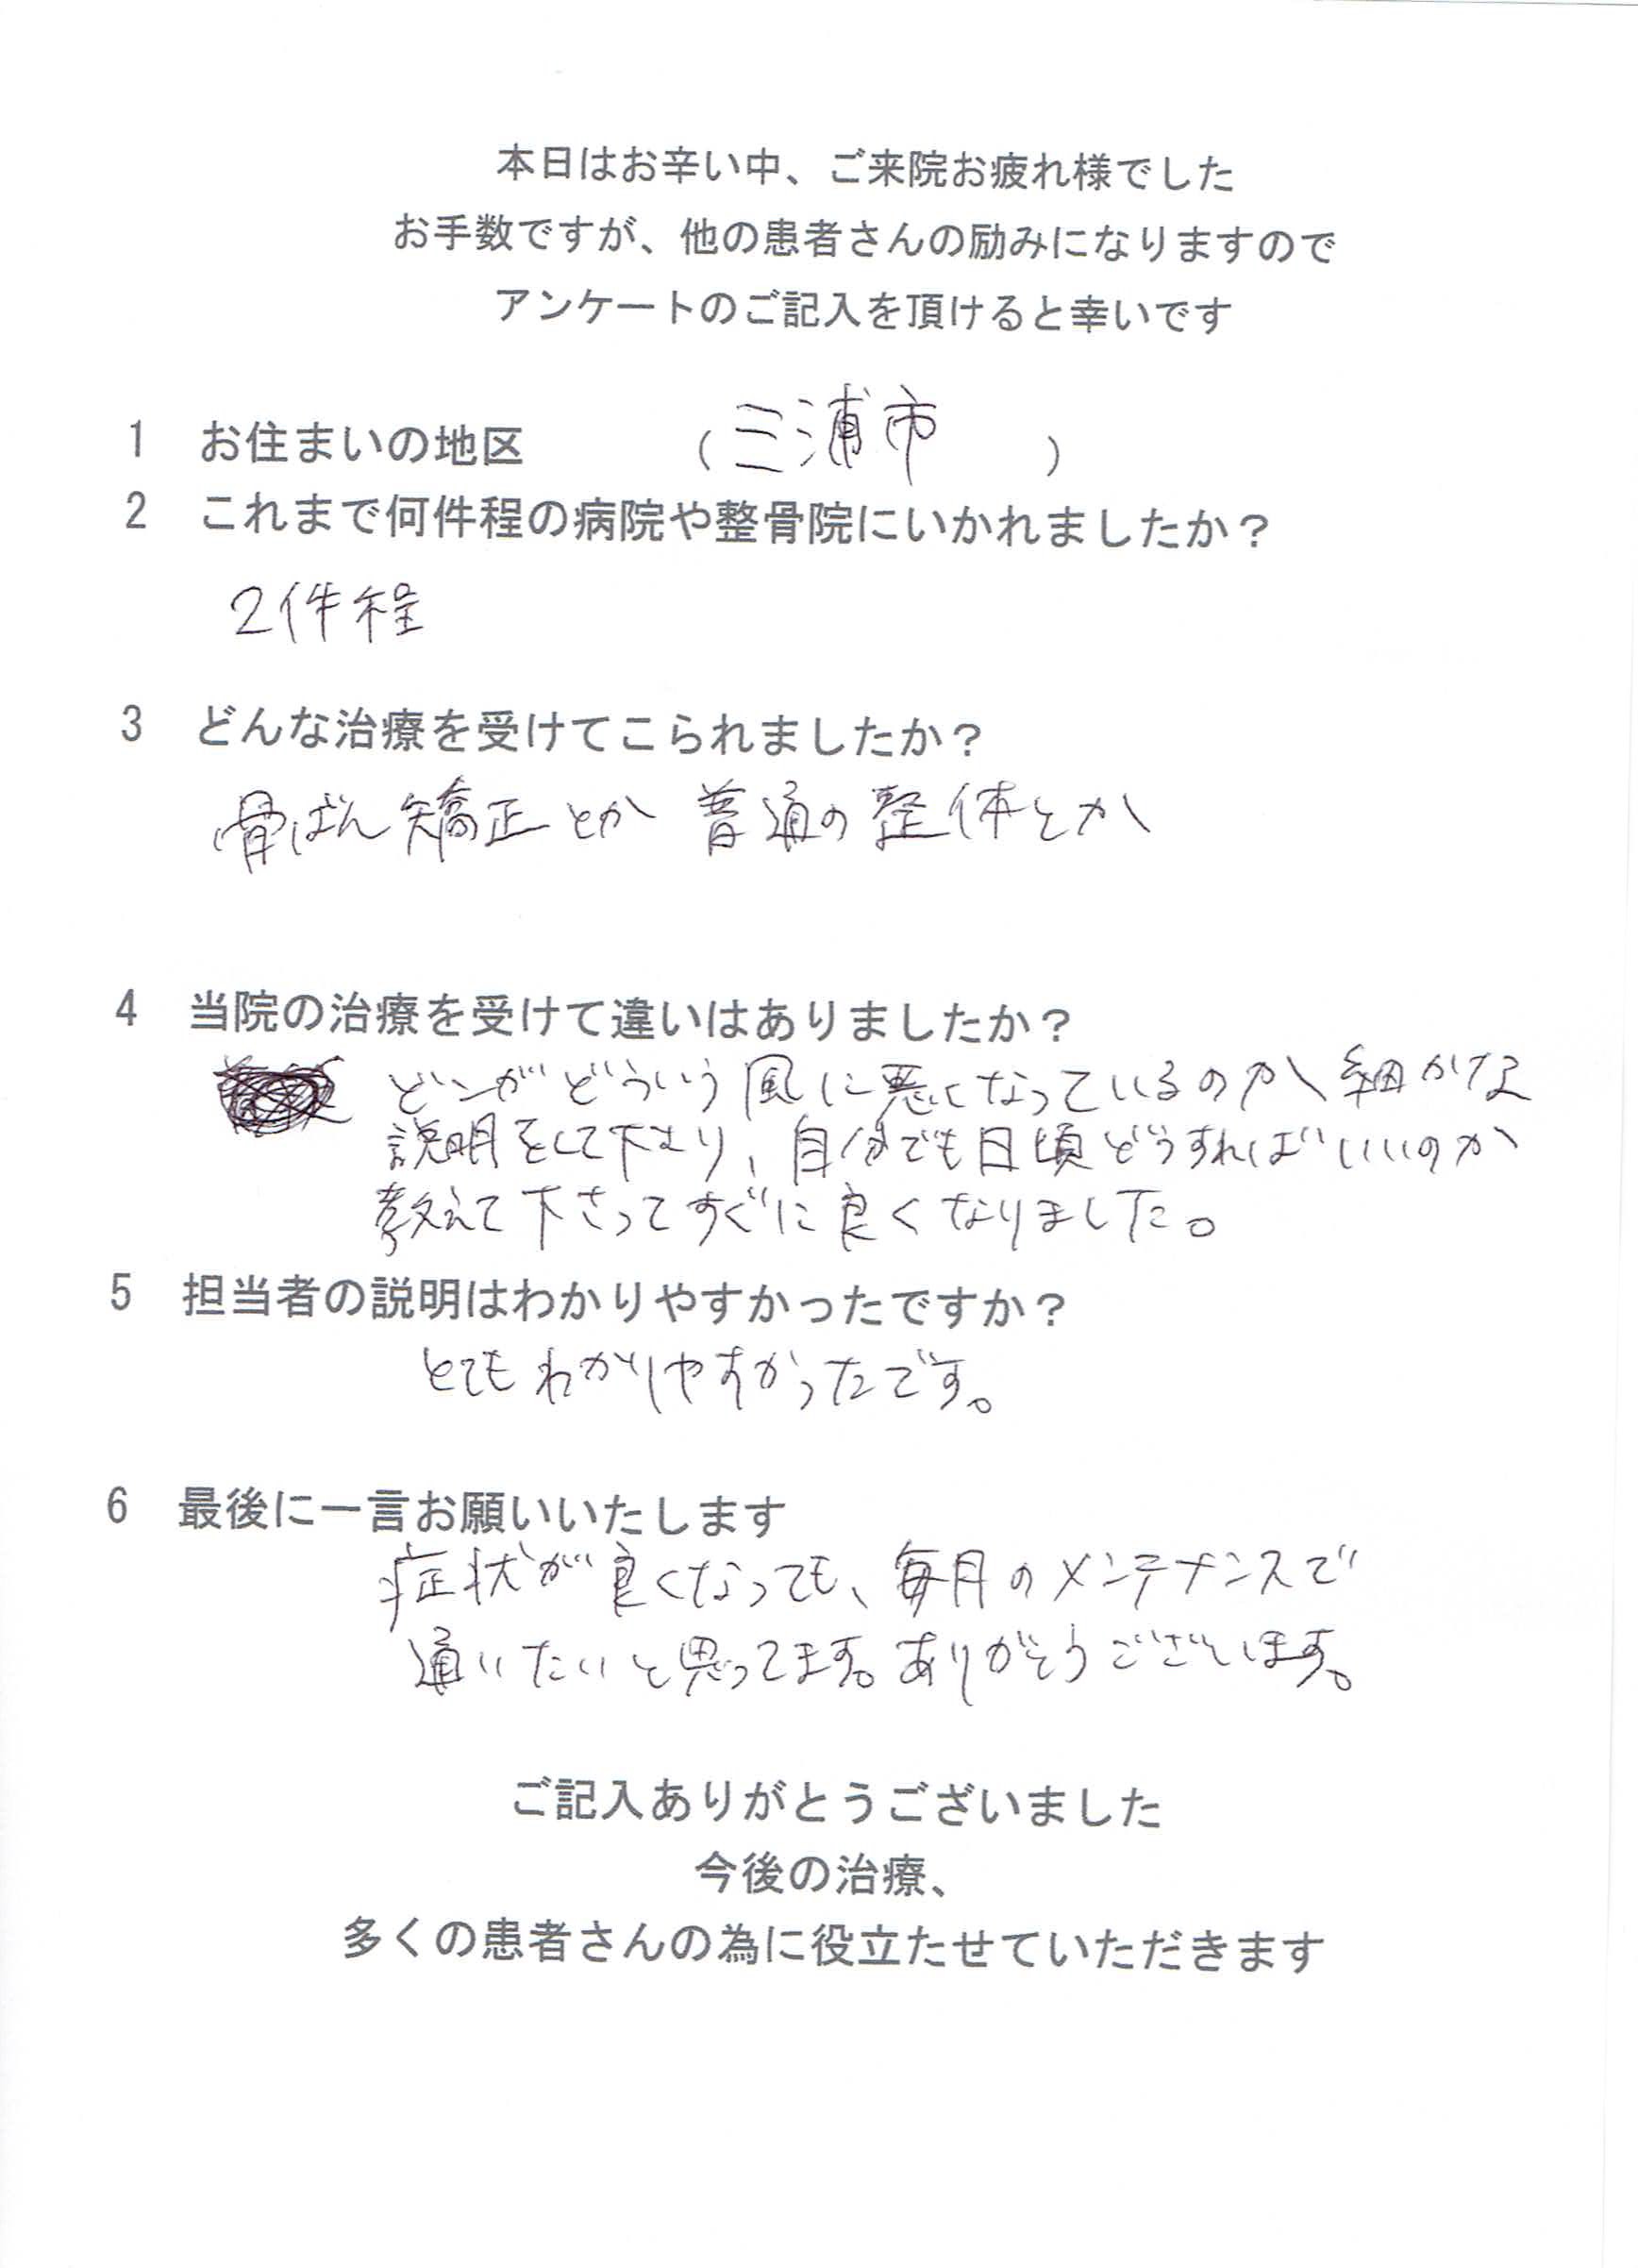 本日はお辛い中、ご来院お疲れ様でした
お手数ですが、他の患者さんの励みになりますので
アンケートのご記入を頂けると幸いです
1 お住まいの地区 (三浦市)
2 これまで何件程の病院や整骨院にいかれましたか?
2件程
3 どんな治療を受けてこられましたか?
骨ばん矯正とか 普通の整体とか
4 当院の治療を受けて違いはありましたか?
どこがどういう風に悪くなっているのか細かな
説明をして下さり、自分でも日頃どうすればいいのか
教えて下さってすぐに良くなりました。
5 担当者の説明はわかりやすかったですか?
とてもわかりやすかったです。
6 最後に一言お願いいたします
症状が良くなっても、毎月のメンテナンスで
通いたいと思ってます。ありがとうございます。
ご記入ありがとうございました
今後の治療、
多くの患者さんの為に役立たせていただきます